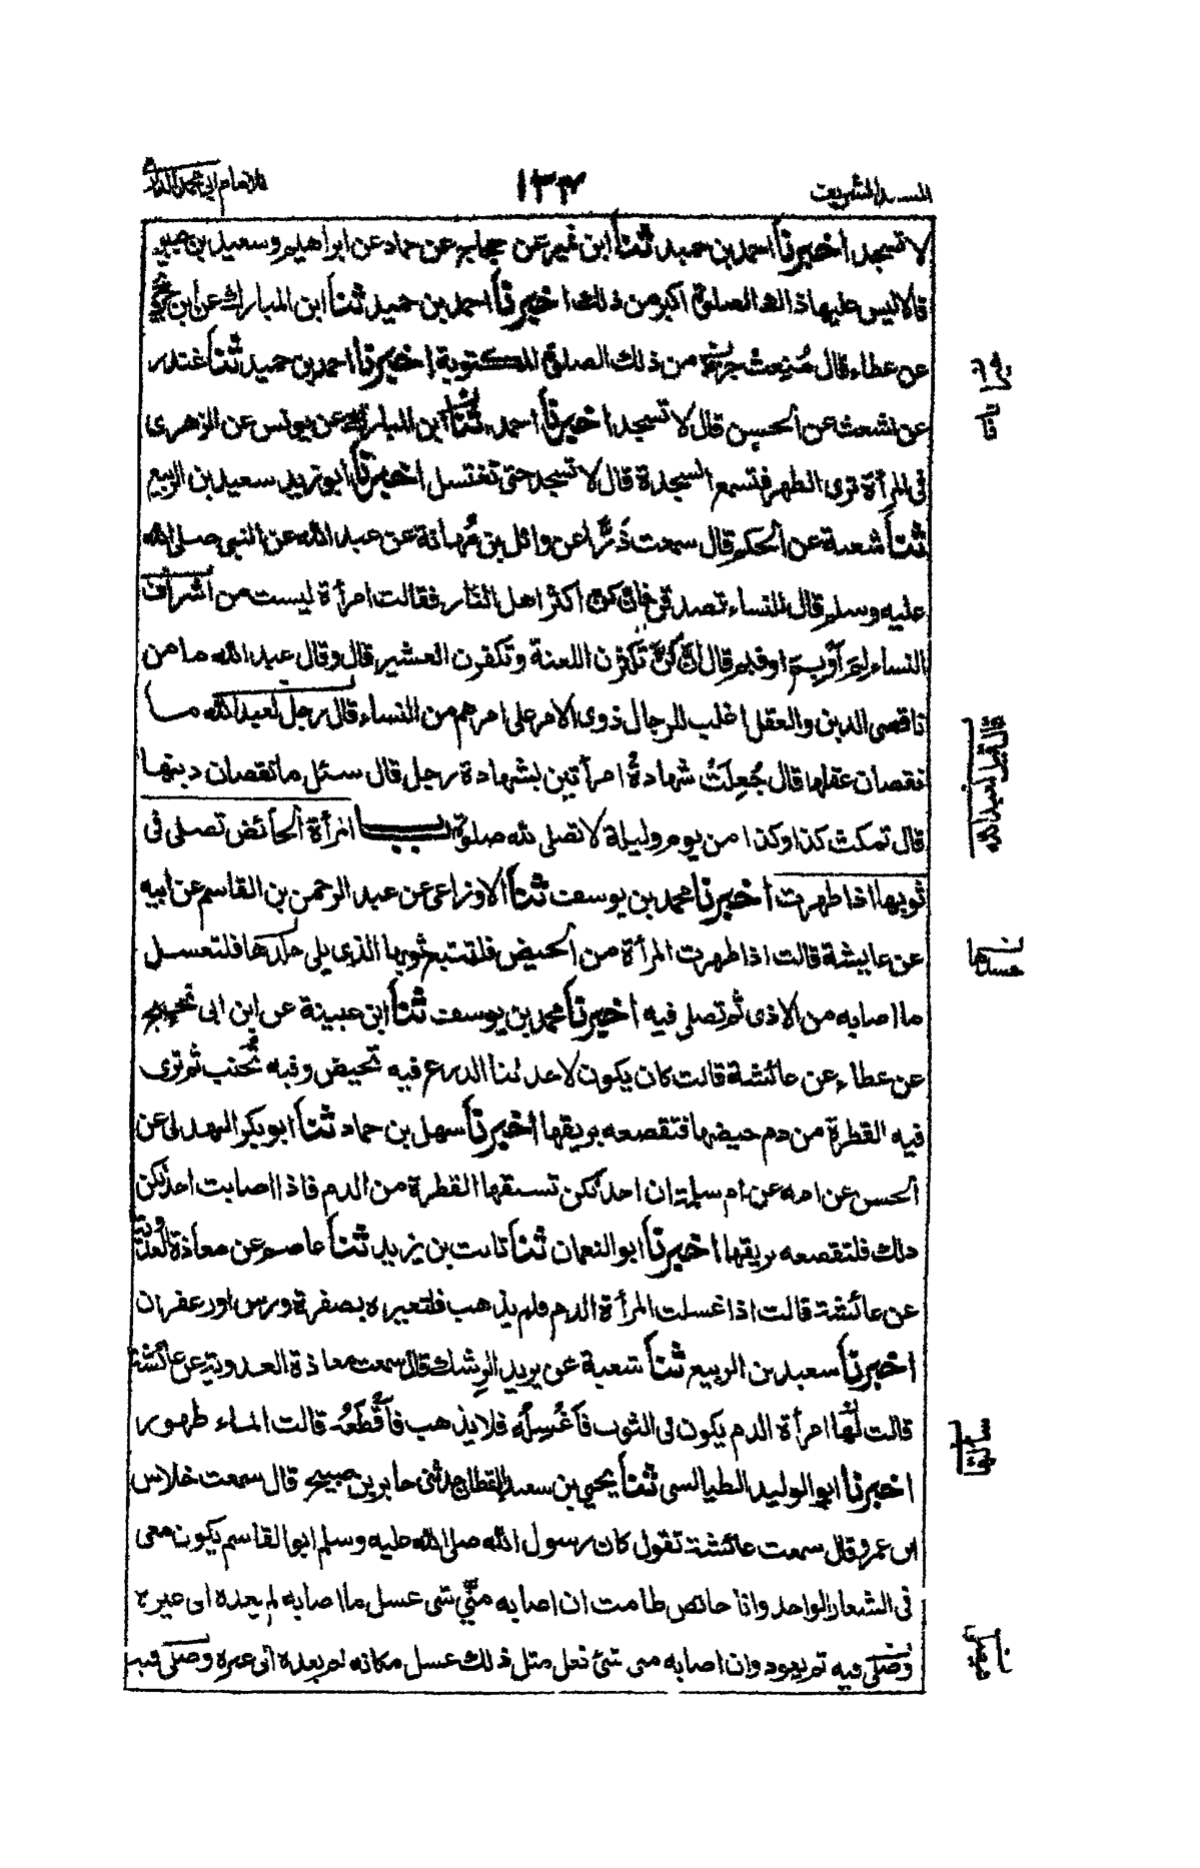 المسند الشريف
١٣٧
للامام ابي محمد الدارمي
لا تسجد اخبرنا احمد بن حميد ثنا ابن نمير عن حجاج عن حماد عن ابراهيم وسعيد بن جبير
قالا ليس عليها ذاك الصلوة اكبر من ذلك اخبرنا احمد بن حميد ثنا ابن المبارك عن ابن جريج
عن عطاء قال مُنِعت خيرًا من ذلك الصلوة المكتوبة اخبرنا احمد بن حميد ثنا غندر
عن اشعث عن الحسن قال لا تسجد اخبرنا احمد ثنا ابن المبارك عن يونس عن الزهرى
فى المرأة ترى الطهر فتسمع السجدة قال لا تسجد حتى تغتسل اخبرنا ابو زيد سعيد بن الربيع
ثنا شعبة عن الحكم قال سمعت ذَرًّا عن وائل بن مُهانة عن عبد الله عن النبى صلى الله
عليه وسلم قال للنساء تصدقن فانكن اكثر اهل النار فقالت امرأة ليست من اشراف
النساء لِمَ او بِمَ او فيم قال انكن تكثرن اللعنة وتكفرن العشير قال وقال عبد الله ما من
ناقصى الدين والعقل اغلب للرجال ذوى الامر على امرهم من النساء قال رجل لعبد الله ما
نقصان عقلها قال جُعِلَتْ شهادةُ امرأتين بشهادة رجل قال سئل ما نقصان دينها
قال تمكث كذا وكذا من يوم وليلة لا تصلى لله صلوة باب المرأة الحائض تصلى فى
ثوبها اذا طهرت اخبرنا محمد بن يوسف ثنا الاوزاعى عن عبد الرحمن بن القاسم عن ابيه
عن عايشة قالت اذا طهرت المرأة من الحيض فلتتبع ثوبها الذى يلى جلدها فلتغسل
ما اصابه من الاذى ثم تصلى فيه اخبرنا محمد بن يوسف ثنا ابن عيينة عن ابن ابى نجيح
عن عطاء عن عائشة قالت كان يكون لاحدٰنا الدرع فيه تحيض وفيه تُجنب ثم ترى
فيه القطرة من دم حيضها فتقصعه بريقها اخبرنا سهل بن حماد ثنا ابو بكر الهذلى عن
الحسن عن امه عن ام سلمة ان احدٰكن تسبقها القطرة من الدم فاذا اصابت احدٰكن
ذلك فلتقصعه بريقها اخبرنا ابو النعمان ثنا ثابت بن يزيد ثنا عاصم عن معاذة العدوية
عن عائشة قالت اذا غسلت المرأة الدم فلم يذهب فلتغيره بصفرة ورس او زعفران
اخبرنا سعيد بن الربيع ثنا شعبة عن يزيد الرِشك قال سمعت معاذة العدوية عن عائشة
قالت لها امرأة الدم يكون فى الثوب فاَغْسِلُه فلا يذهب فاَقْطَعُه قالت الماء طهور
اخبرنا ابو الوليد الطيالسى ثنا يحيى بن سعيد القطان حدثنى جابر بن صبيح قال سمعت خلاس
ابن عمرو قال سمعت عائشة تقول كان رسول الله صلى الله عليه وسلم ابو القاسم يكون معى
فى الشعار الواحد وانا حائض طامث ان اصابه منّى شى غسل ما اصابه لم يعده الى غيره
وصَلّى فيه ثم يعود وان اصابه منى شئ فعل مثل ذلك غسل مكانه لم يعده الى غيره وصَلّى فيه
قال فقيل لعبد الله
جسدها
سألتها